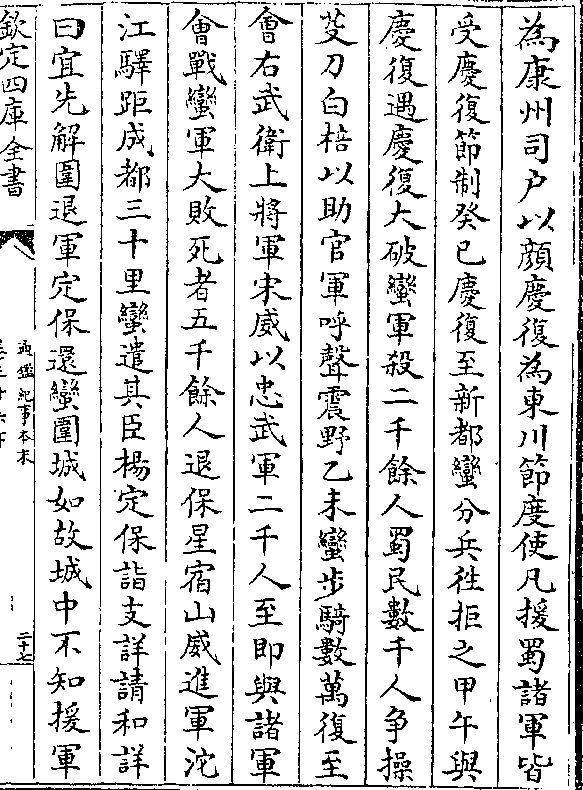 為康州司户以顔慶復為東川節度使凡援蜀諸軍皆
受慶復節制癸巳慶復至新都蠻分兵徃拒之甲午與
慶復遇慶復大破蠻軍殺二千餘人蜀民數千人争操
芟刀白棓以助官軍呼聲震野乙未蠻步騎數萬復至
會右武衛上將軍宋威以忠武軍二千人至即與諸軍
會戰蠻軍大敗死者五千餘人退保星宿山威進軍沱
江驛距成都三十里蠻遣其臣楊定保詣支詳請和詳
曰宜先解圍退軍定保還蠻圍城如故城中不知援軍
欽定四庫全書
通鑑紀事本末
二十七